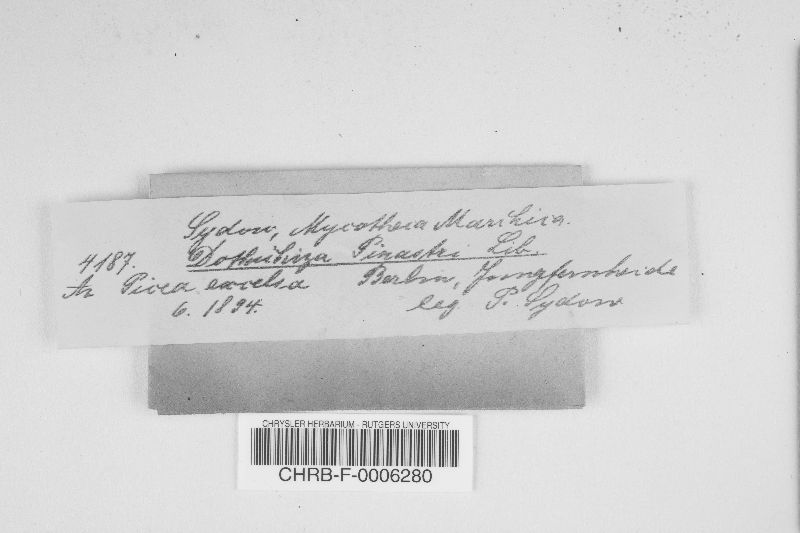 Sydow, Mycotheca Marchica.
4187. Dothichiza Pinastri Lib.
An Picea excelsa Berlin, Jungfernheide
6. 1894. leg. P. Sydow
CHRYSLER HERBARIUM - RUTGERS UNIVERSITY
CHRB-F-0006280